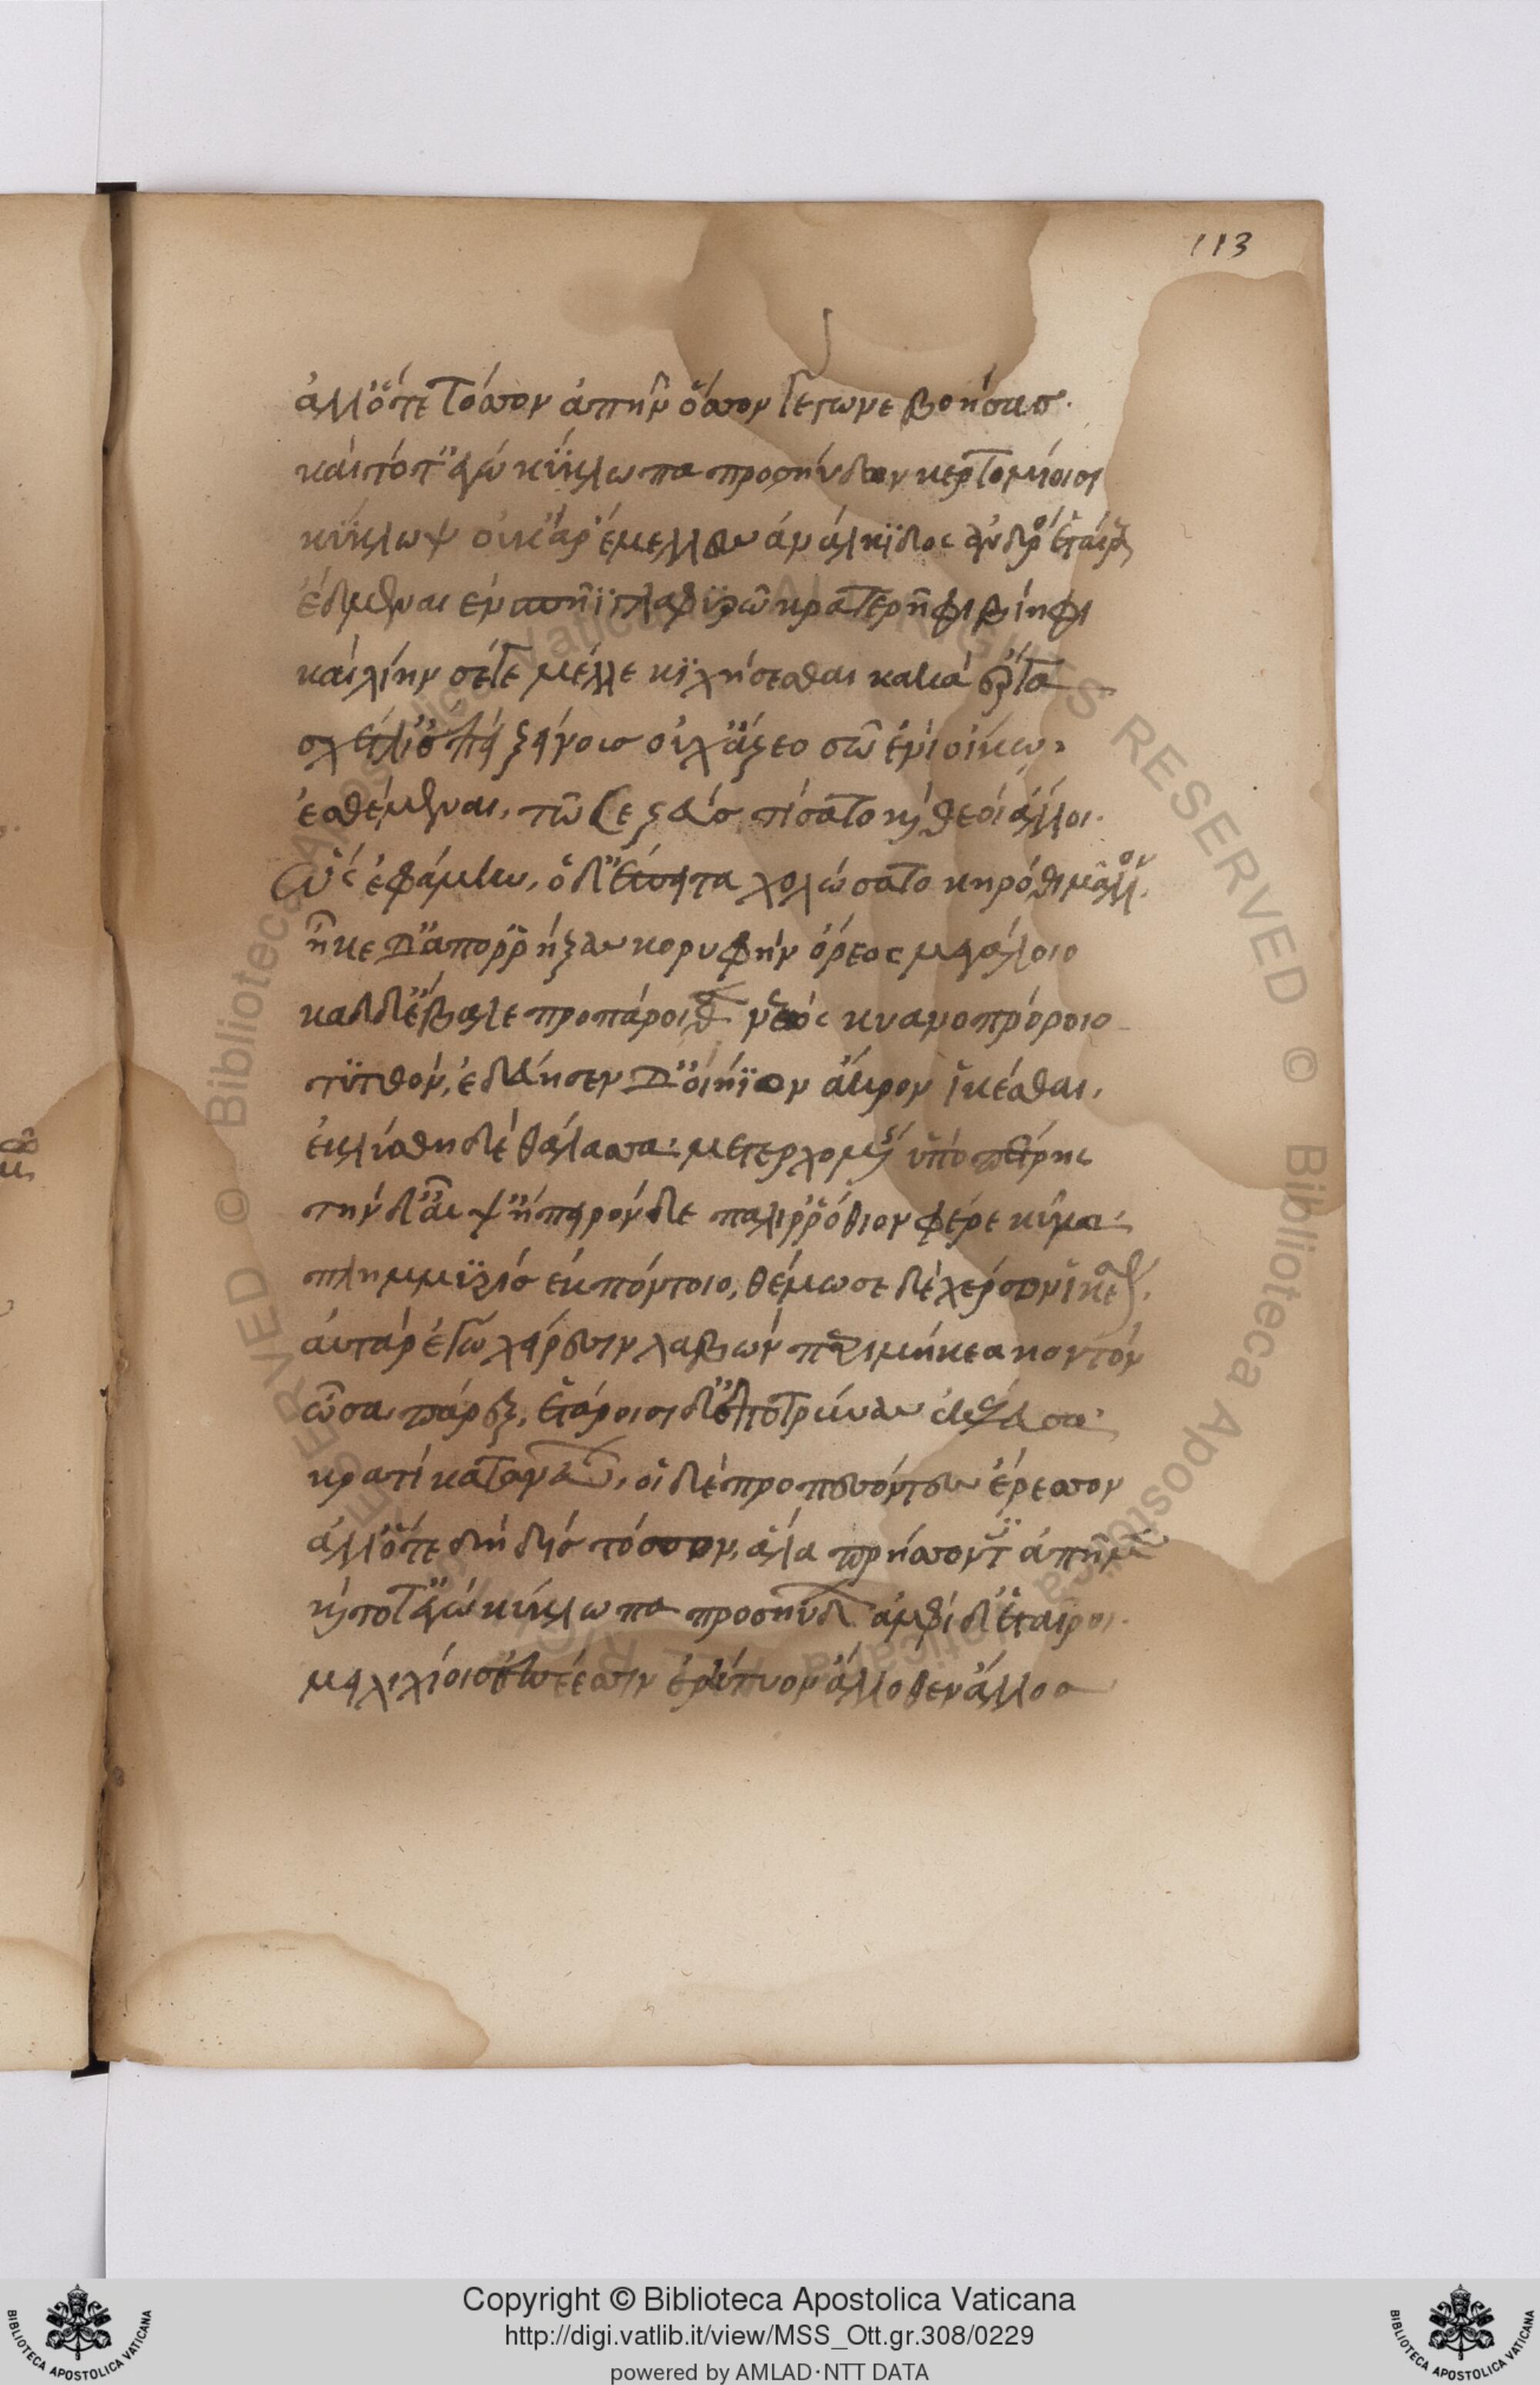 113
ἀλλ' ὅτε τόσσον ἀπῆν ὅσσον γέγωνε βοήσασ.
καὶ τότ' ἐγὼ κύκλωπα προσηύδων κερτομίοισι
κύκλωψ οὐκ ἄρ' ἔμελλες ἀνάλκιδος ἀνδρὸς ἑταίρους
ἔδμεναι ἐν σπῆϊ γλαφυρῶ κρατερῆφι βίηφι
καὶ λίην σέ γε μέλλε κιχήσεσθαι κακὰ ἔργα
σχέτλι' ἐπεὶ ξείνουσ οὐχ ἅζεο σῶ ἐνὶ οἴκω,
ἐσθέμεναι, τῶ σε ζεὺσ τίσατο καὶ θεοὶ ἄλλοι.
ὣς ἐφάμην, ὁ δ' ἔπειτα χολώσατο κηρόθι μᾶλλον,
ἧκε δ' ἀπορρήξας κορυφὴν ὄρεος μεγάλοιο
καδδ' ἔβαλε προπάροιθε νεὸς κυανοπρώροιο
τυτθόν, ἐδεύησεν δ' οἰήϊον ἄκρον ἱκέσθαι,
ἐκλύσθη δὲ θάλασσα κατερχομένης ὑπὸ πέτρης
τὴν δ' αἶψ' ἤπειρόνδε παλιρρόθιον φέρε κῦμα
πλημμυρὶσ ἐκ πόντοιο, θέμωσε δὲ χέρσον ἱκέσθαι.
αὐτὰρ ἐγὼ χείρεσσιν λαβὼν περιμήκεα κοντὸν
ὦσα πάρεξ, ἑτάροισι δ' ἐποτρύνας ἐκέλευσα
κρατὶ κατανεύων, οἱ δὲ προπεσόντες ἔρεσσον
ἀλλ' ὅτε δὴ δὶσ τόσσον, ἅλα πρήσσοντες ἀπῆμεν
καὶ τότ' ἐγὼ κύκλωπα προσηύδων ἀμφὶ δ' ἑταῖροι.
μειλιχίοισ ἐπέεσσιν ἐρήτυον ἄλλοθεν ἄλλοσ
Copyright © Biblioteca Apostolica Vaticana
http://digi.vatlib.it/view/MSS_Ott.gr.308/0229
powered by AMLAD·NTT DATA